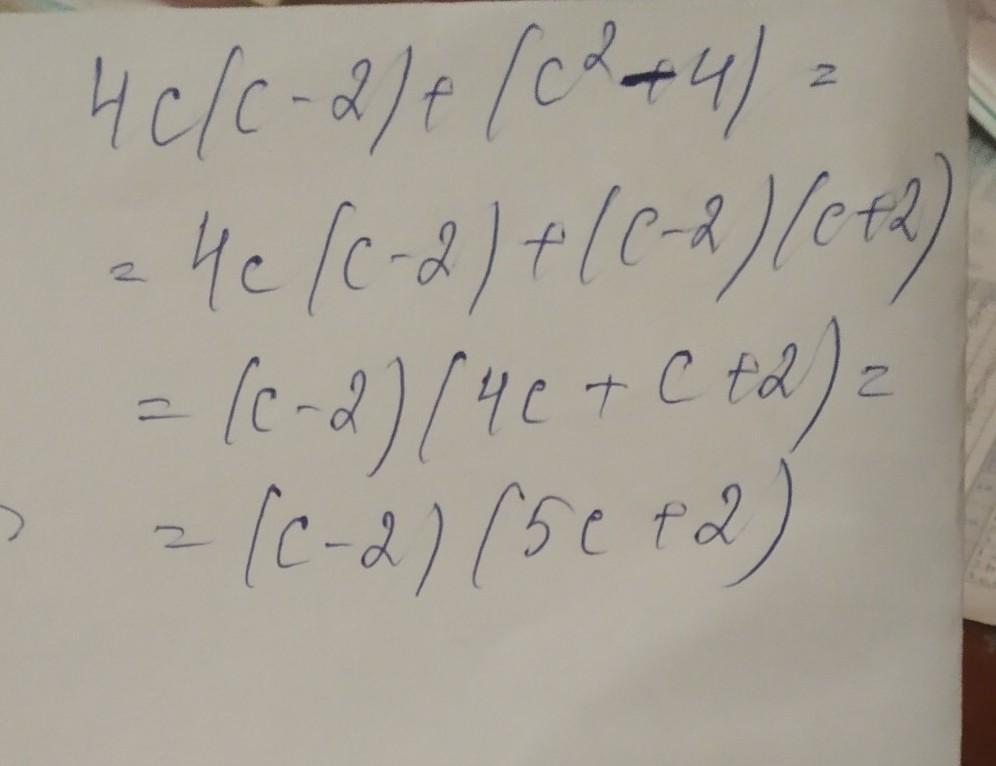 4c(c-2)+(c²-4)=
=4c(c-2)+(c-2)(c+2)
=(c-2)(4c+c+2)=
=(c-2)(5c+2)